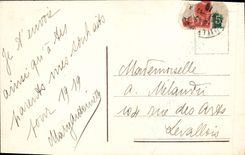 Je t'envoie
ainsi qu'à tes
parents mes souhaits
pour 1919
Marguerite
Mademoiselle
A. Milantri
104 rue des Arts
Levallois